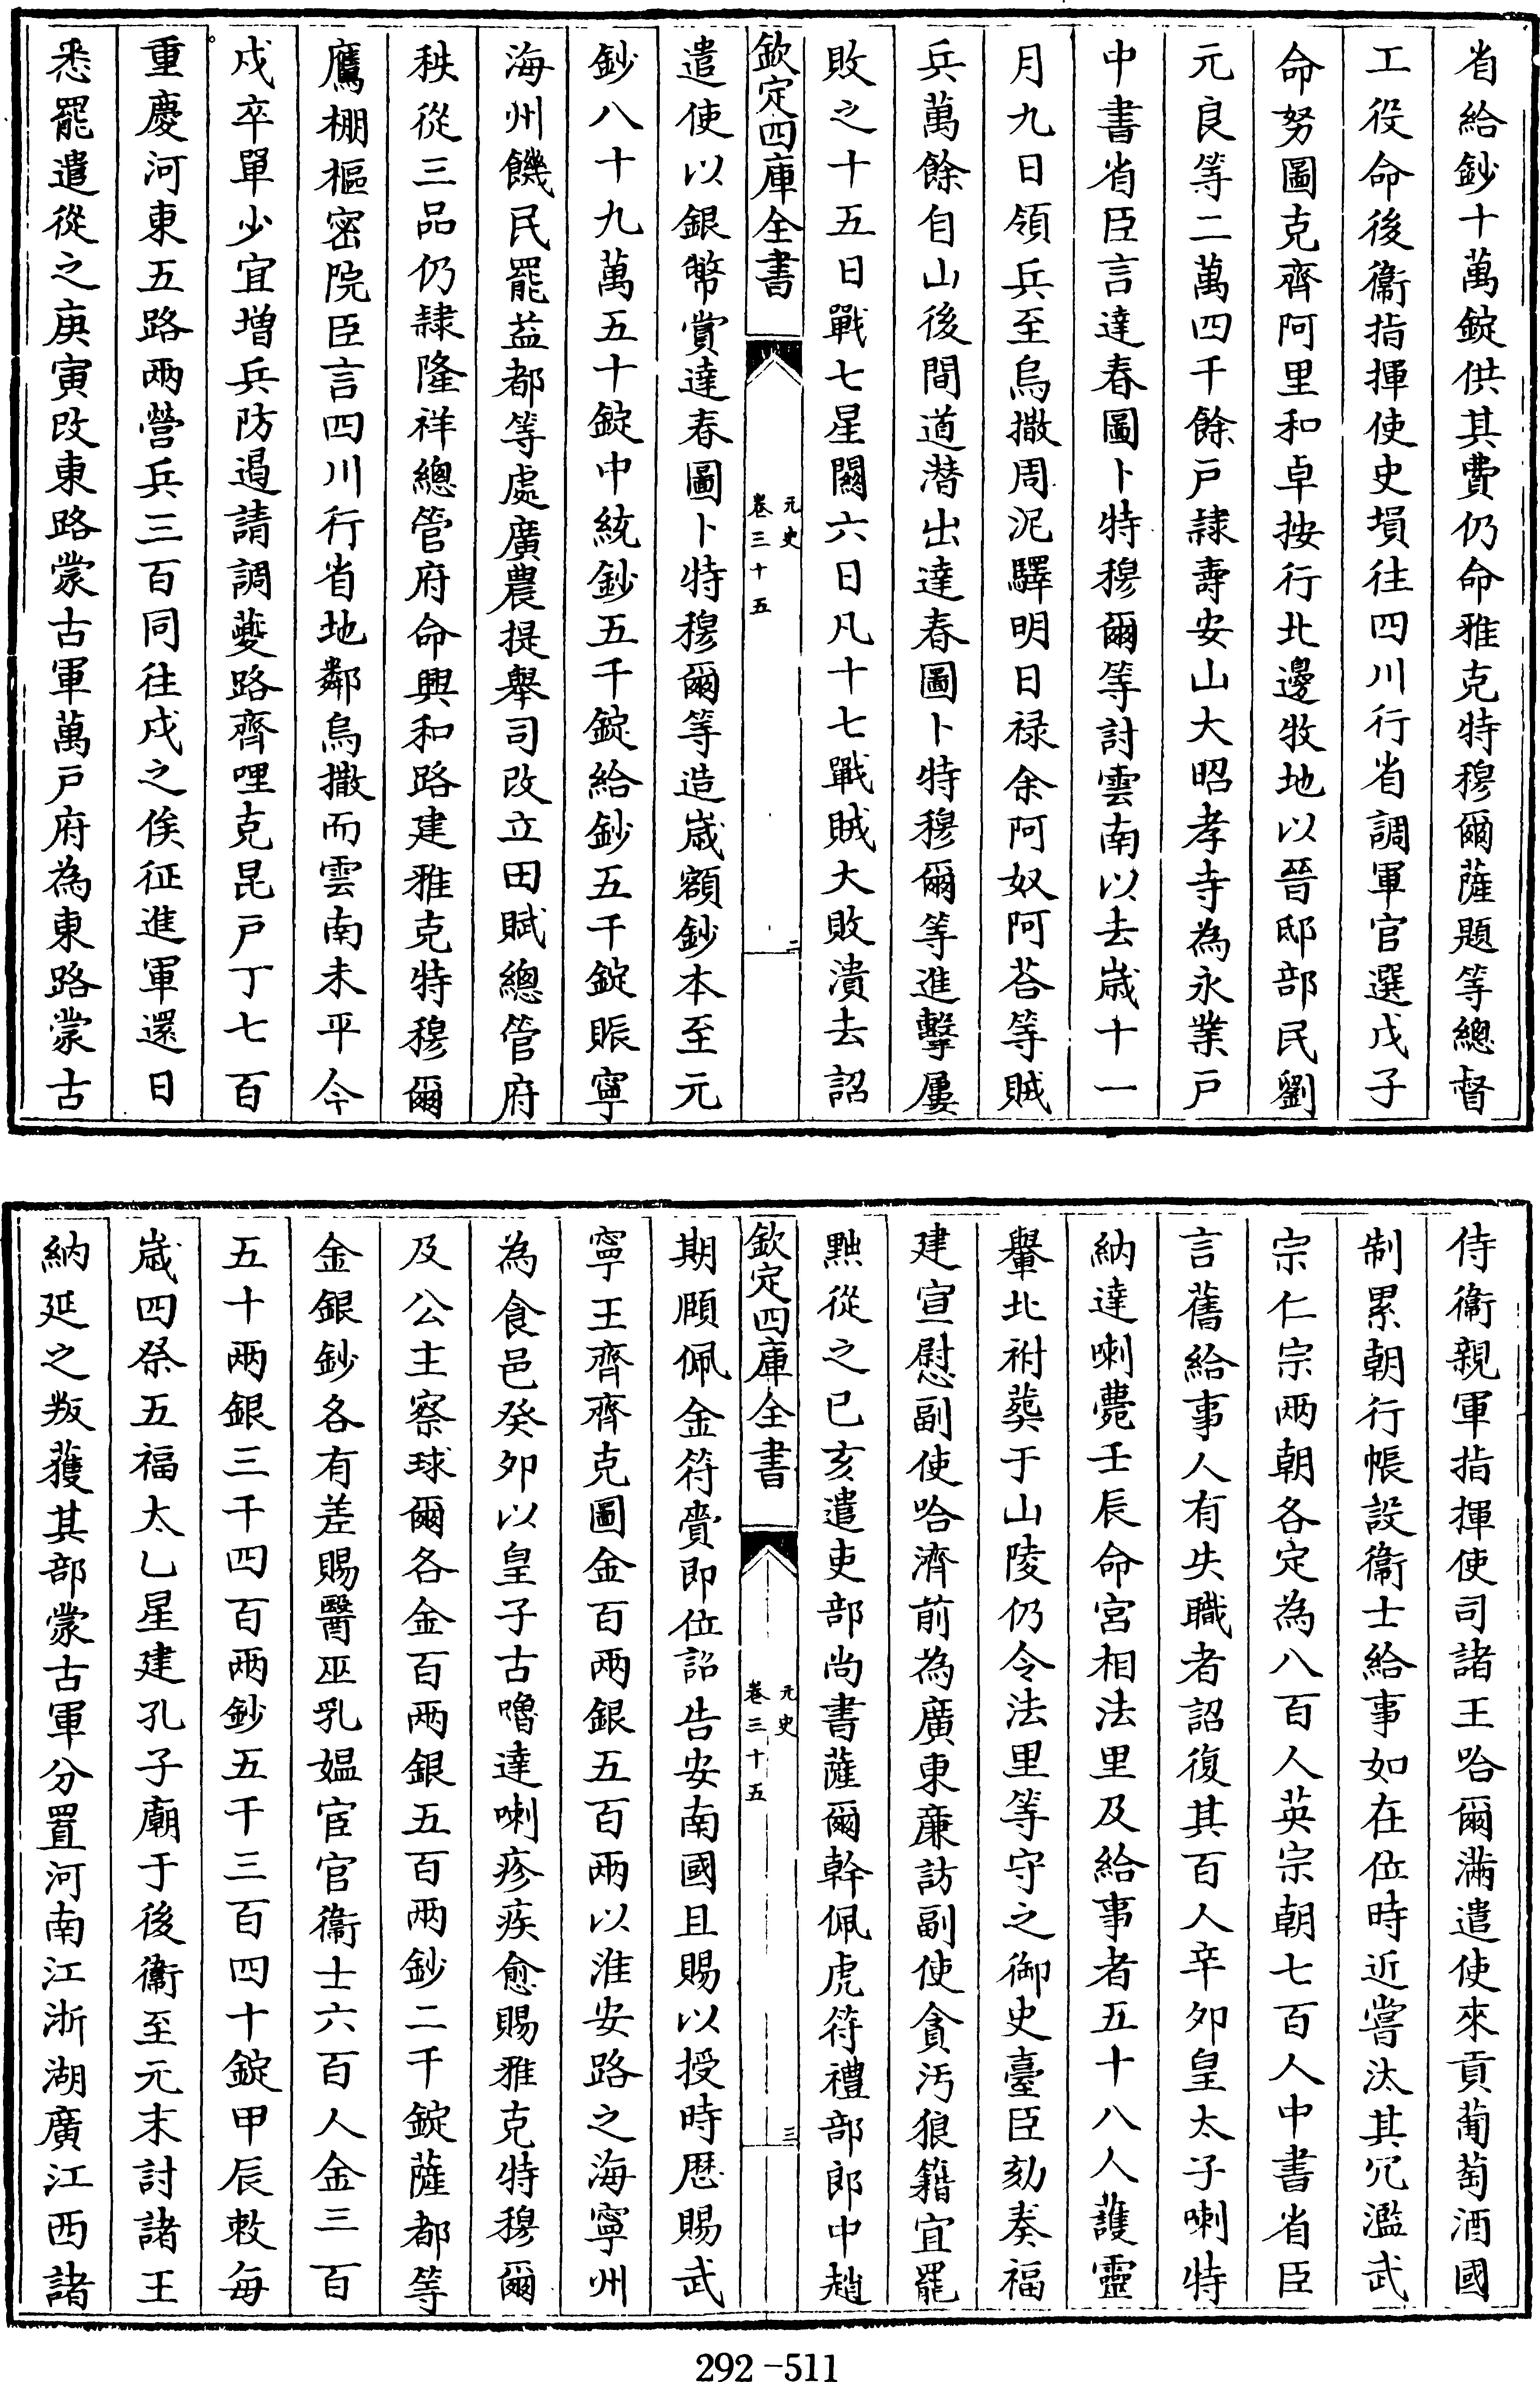 省給鈔十萬錠供其費仍命雅克特穆爾薩題等總督
工役命後衞指揮使史塤往四川行省調軍官選戊子
命努圖克齊阿里和卓按行北邊牧地以晉邸部民劉
元良等二萬四千餘戶隷壽安山大昭孝寺為永業戶
中書省臣言達春圖卜特穆爾等討雲南以去歲十一
月九日領兵至烏撒周泥驛明日祿余阿奴阿荅等賊
兵萬餘自山後間道潛出達春圖卜特穆爾等進擊屢
敗之十五日戰七星關六日凡十七戰賊大敗潰去詔
欽定四庫全書
元史
卷三十五
二
遣使以銀幣賞達春圖卜特穆爾等造歲額鈔本至元
鈔八十九萬五十錠中統鈔五千錠給鈔五千錠賑寧
海州饑民罷益都等處廣農提舉司改立田賦總管府
秩從三品仍隷隆祥總管府命興和路建雅克特穆爾
鷹棚樞密院臣言四川行省地鄰烏撒而雲南未平今
戍卒單少宜増兵防遏請調夔路齊哩克昆戶丁七百
重慶河東五路兩營兵三百同往戍之俟征進軍還日
悉罷遣從之庚寅改東路蒙古軍萬戶府為東路蒙古
侍衞親軍指揮使司諸王哈爾滿遣使來貢葡萄酒國
制累朝行帳設衞士給事如在位時近嘗汰其冗濫武
宗仁宗兩朝各定為八百人英宗朝七百人中書省臣
言舊給事人有失職者詔復其百人辛卯皇太子喇特
納達喇薨壬辰命宮相法里及給事者五十八人護靈
轝北祔葬于山陵仍令法里等守之御史臺臣劾奏福
建宣慰副使哈濟前為廣東廉訪副使貪汚狼籍宜罷
黜從之已亥遣吏部尚書薩爾幹佩虎符禮部郎中趙
欽定四庫全書
元史
卷三十五
三
期頤佩金符賫即位詔告安南國且賜以授時厯賜武
寧王齊齊克圖金百兩銀五百兩以淮安路之海寧州
為食邑癸卯以皇子古嚕達喇疹疾愈賜雅克特穆爾
及公主察球爾各金百兩銀五百兩鈔二千錠薩都等
金銀鈔各有差賜醫巫乳媼宦官衞士六百人金三百
五十兩銀三千四百兩鈔五千三百四十錠甲辰敕每
歲四祭五福太乙星建孔子廟于後衞至元末討諸王
納延之叛獲其部蒙古軍分置河南江浙湖廣江西諸
292-511